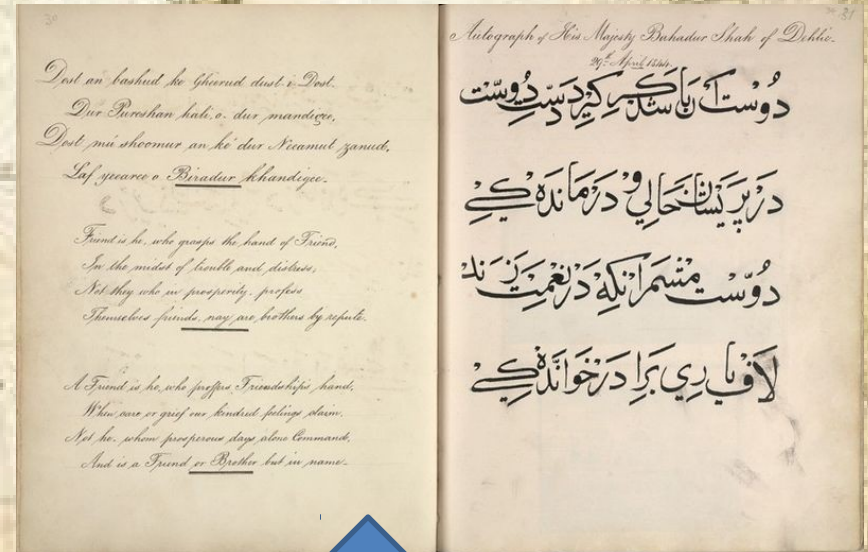 30
Dost an bashud ke Gheerud dust-i-Dost.
Dur Pureshan hali, o. dur mandigee,
Dost mú shoomur an ké dur Neeamut zanud,
Laf yeearee o Biradur khandigee.
Friend is he, who grasps the hand of Friend,
In the midst of trouble and distress,
Not they who in prosperity, profess
Themselves friends, nay are, brothers by repute.
A Friend is he, who proffers Friendship's hand,
When care or grief our kindred feelings claim,
Not he, whom prosperous days alone Command,
And is a Friend or Brother but in name.
31
Autograph of His Majesty Bahadur Shah of Dehlie.
29th April 1844.
دوست آن باشد کہ گیرد دست دوست
در پریشان حالی و درماندہ کے
دوست مشمر آنکہ در نعمت زند
لاف یاری برادر خواندہ کے